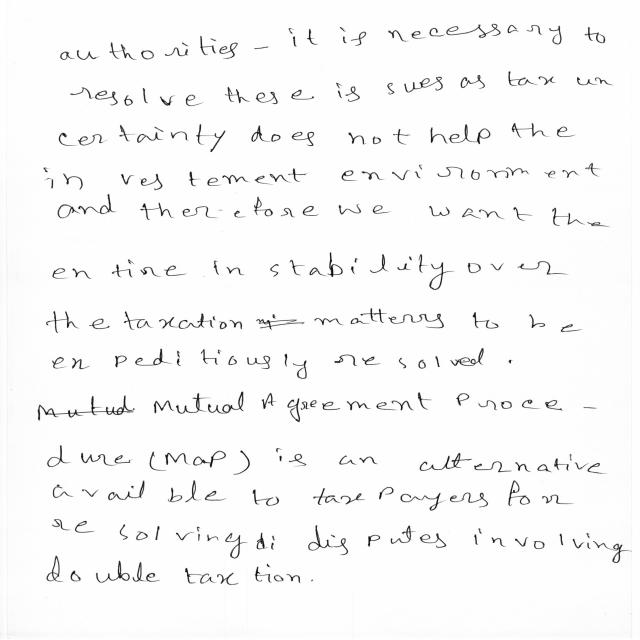 authorities - it is necessary to
resolve these is sues as tax un
certainty does not help the
in vestement environment
and therefore we want the
entire in stability over
the taxation matterrs to be
expeditiously resolved.
Mutud Mutual Agreement Proce -
dure (MAP) is an alternative
availble to taxpayers for
re solving di disputes involving
double taxtion.